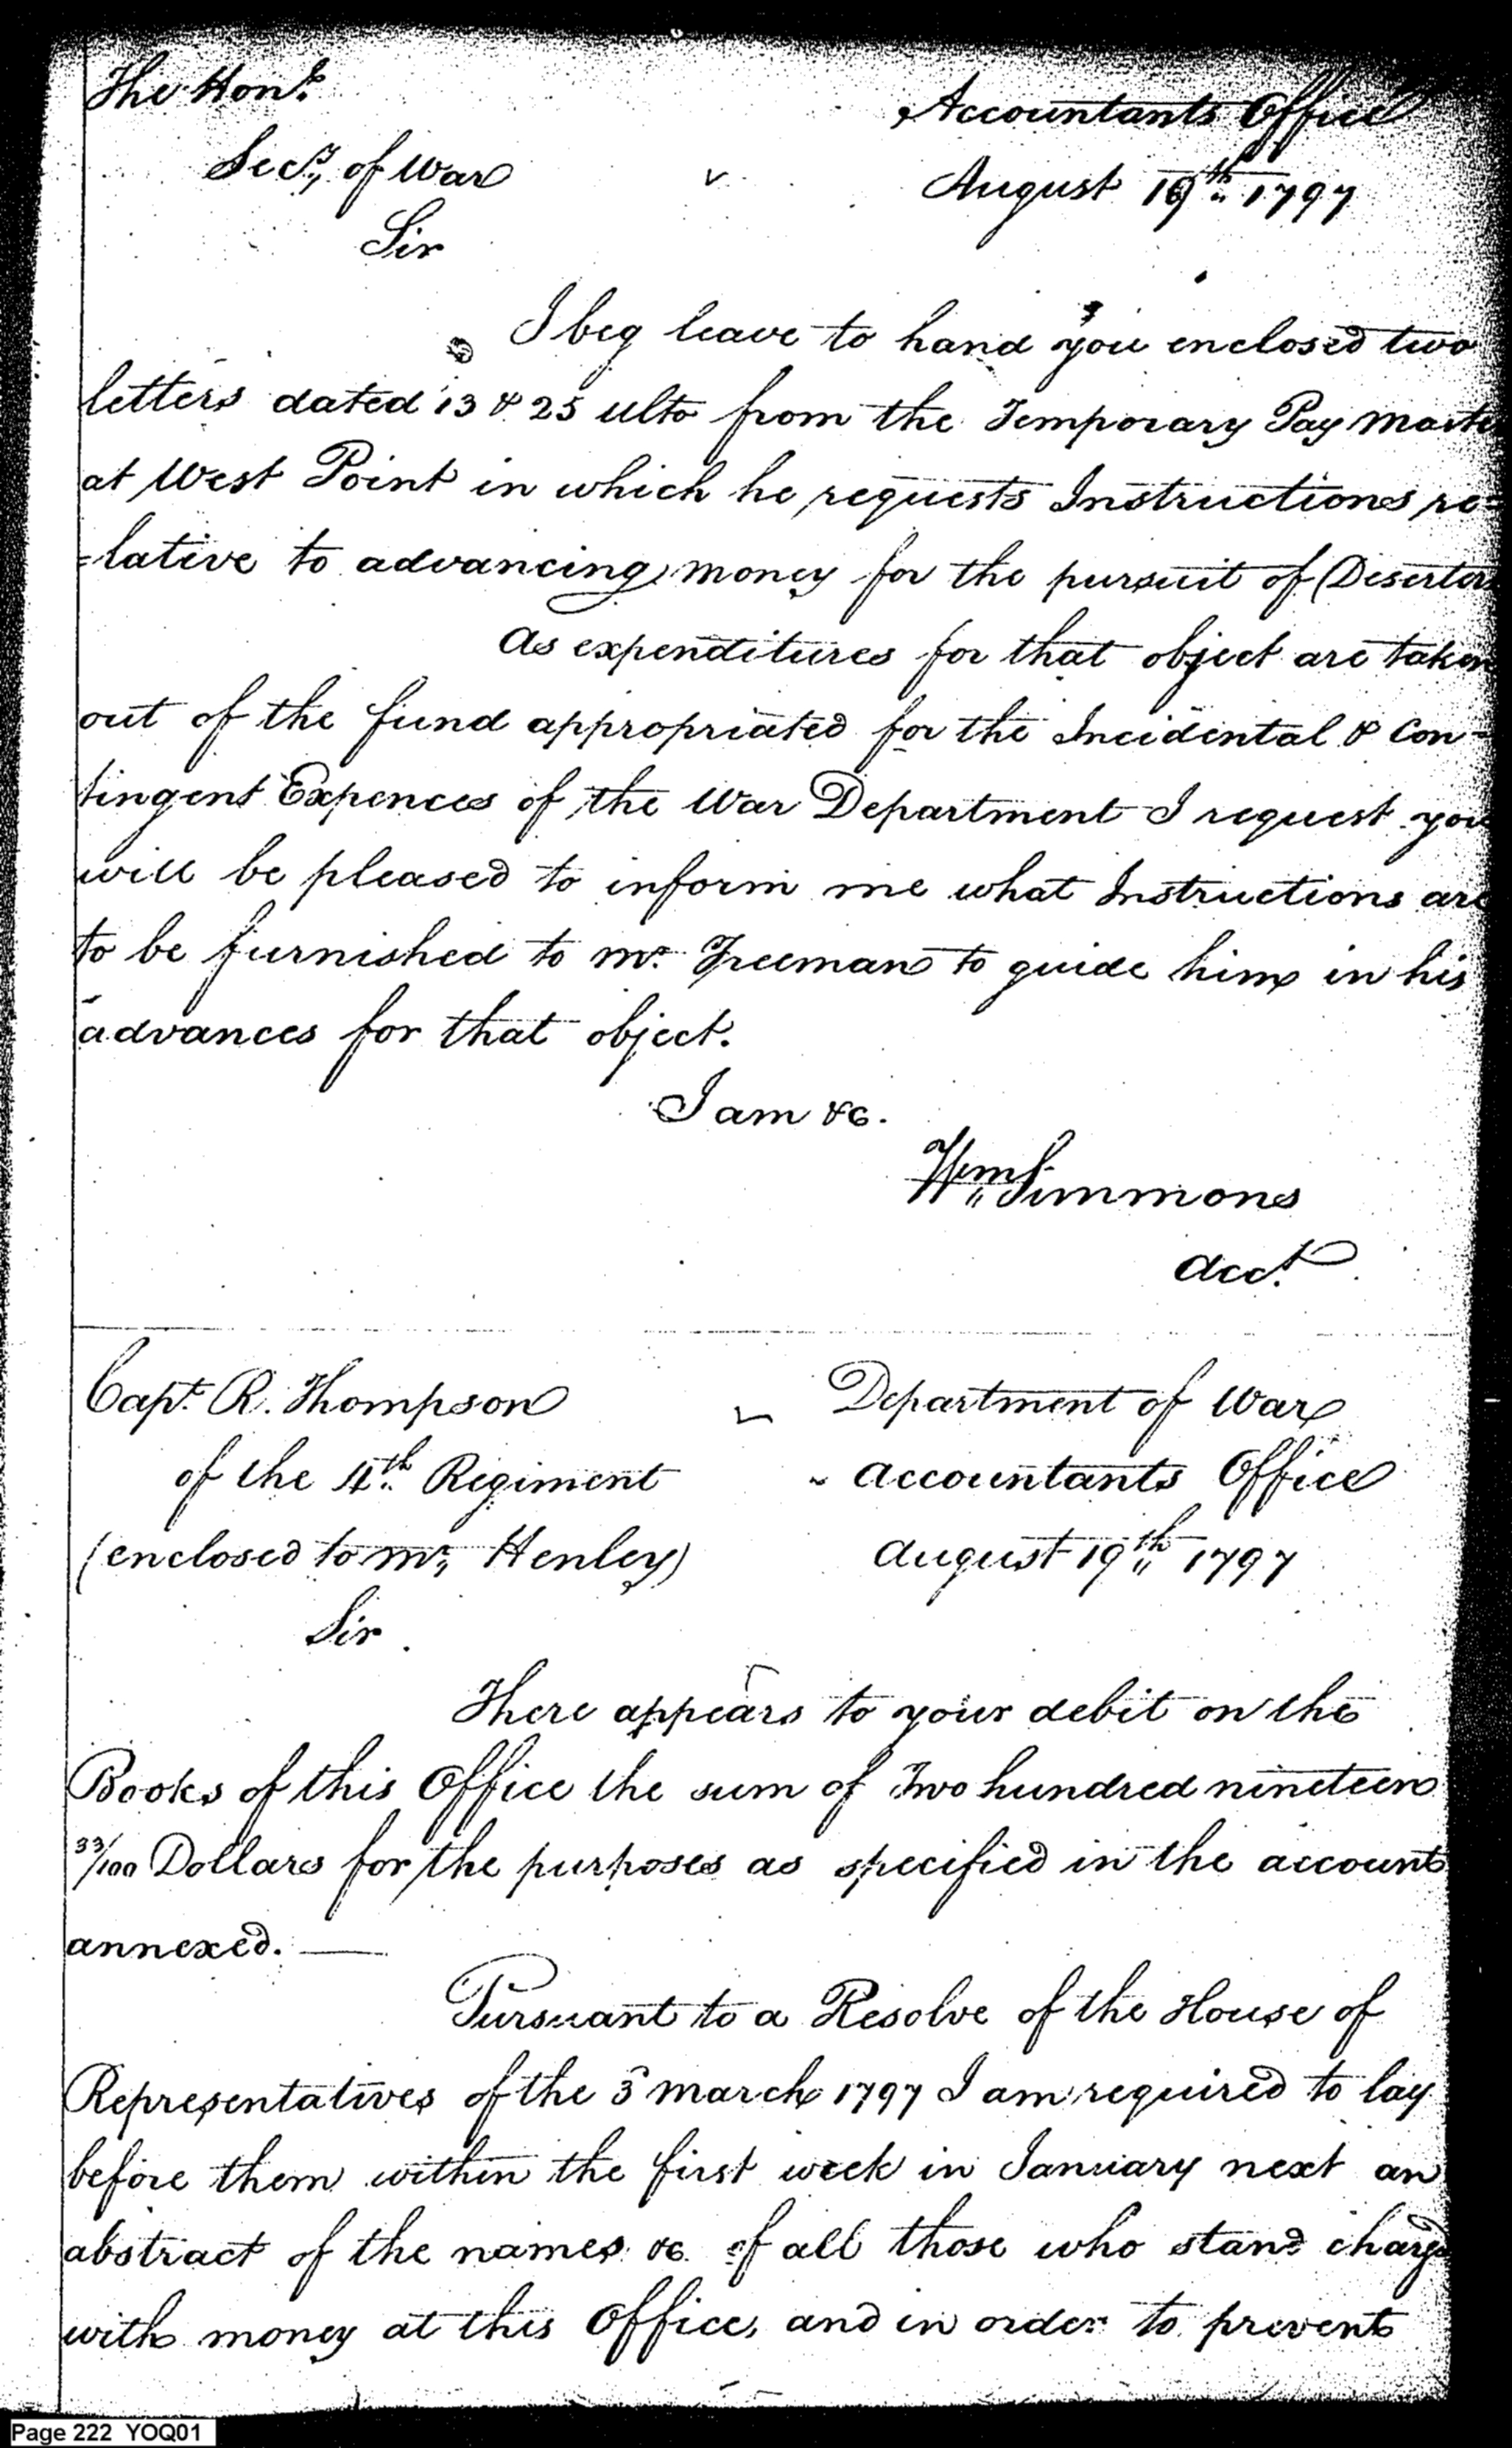 The Honl.
Accountants Office
Secy. of War
August 19th 1797
Sir
I beg leave to hand you enclosed two
letters dated 13 & 25 ulto from the Temporary Pay Maste
at West Point in which he requests Instructions re=
=lative to advancing money for the pursuit of Deserters
As expenditures for that object are taken
out of the fund appropriated for the Incidental & Con-
tingent Expences of the War Department I request you
will be pleased to inform me what Instructions are
to be furnished to Mr. Freeman to guide him in his
advances for that object.
I am &c.
Wm Simmons
Acct.
Capt. R. Thompson
Department of War
of the 4th Regiment
Accountants Office
(enclosed to Mr. Henley)
August 19th 1797
Sir
There appears to your debit on the
Books of this Office the sum of Two hundred nineteen
33/100 Dollars for the purposes as specified in the account
annexed. —
Pursuant to a Resolve of the House of
Representatives of the 3d March 1797 I am required to lay
before them within the first week in January next an
abstract of the names &c. of all those who stand charged
with money at this Office, and in order to prevent
Page 222 YOQ01